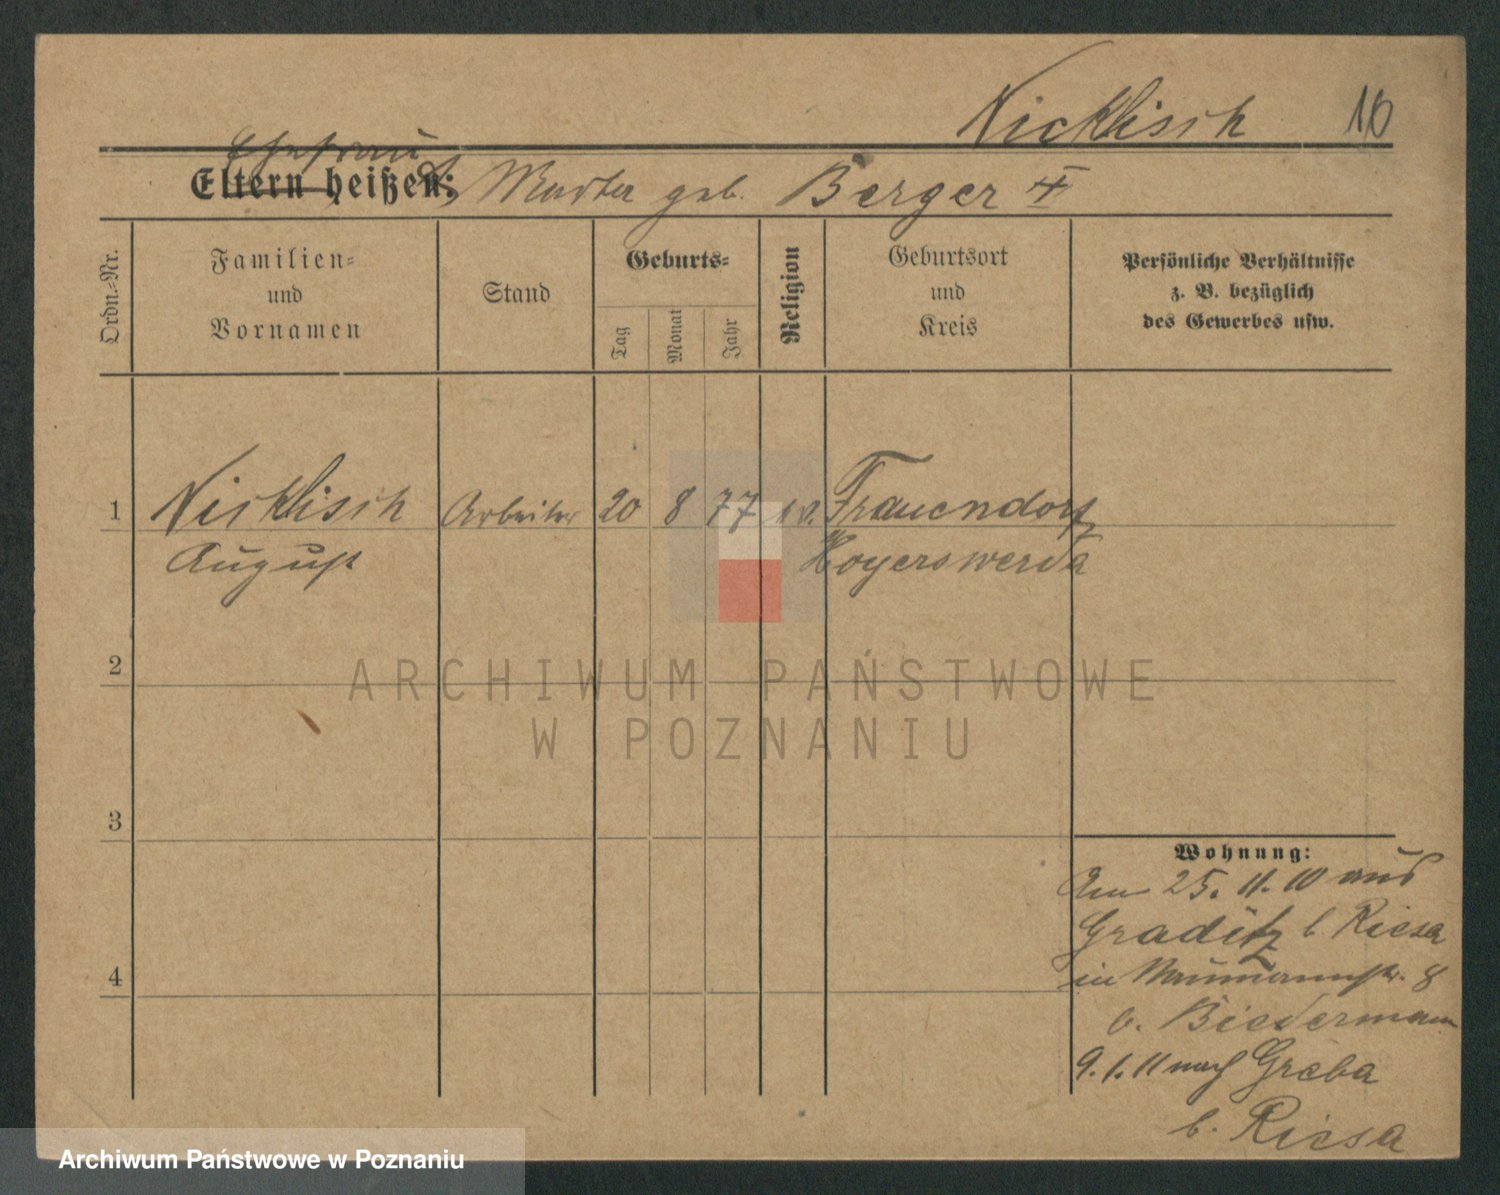 Nicklisch 10
Ehefrau
Eltern heißen: Martha geb. Berger
Ordn.-Nr.
Familien-
und
Vornamen
Stand
Geburts-
Tag
Monat
Jahr
Religion
Geburtsort
und
Kreis
Persönliche Verhältnisse
z. B. bezüglich
des Gewerbes usw.
1 Nicklisch Arbeiter 20 8 77 ev. Frauendorf
August Hoyerswerda
2
3
4
Wohnung:
Am 25. 11. 10 aus
Graditz b Riesa
in Naumannstr. 8
b. Biedermann
9. 1. 11 nach Greba
b. Riesa
ARCHIWUM PAŃSTWOWE
W POZNANIU
Archiwum Państwowe w Poznaniu